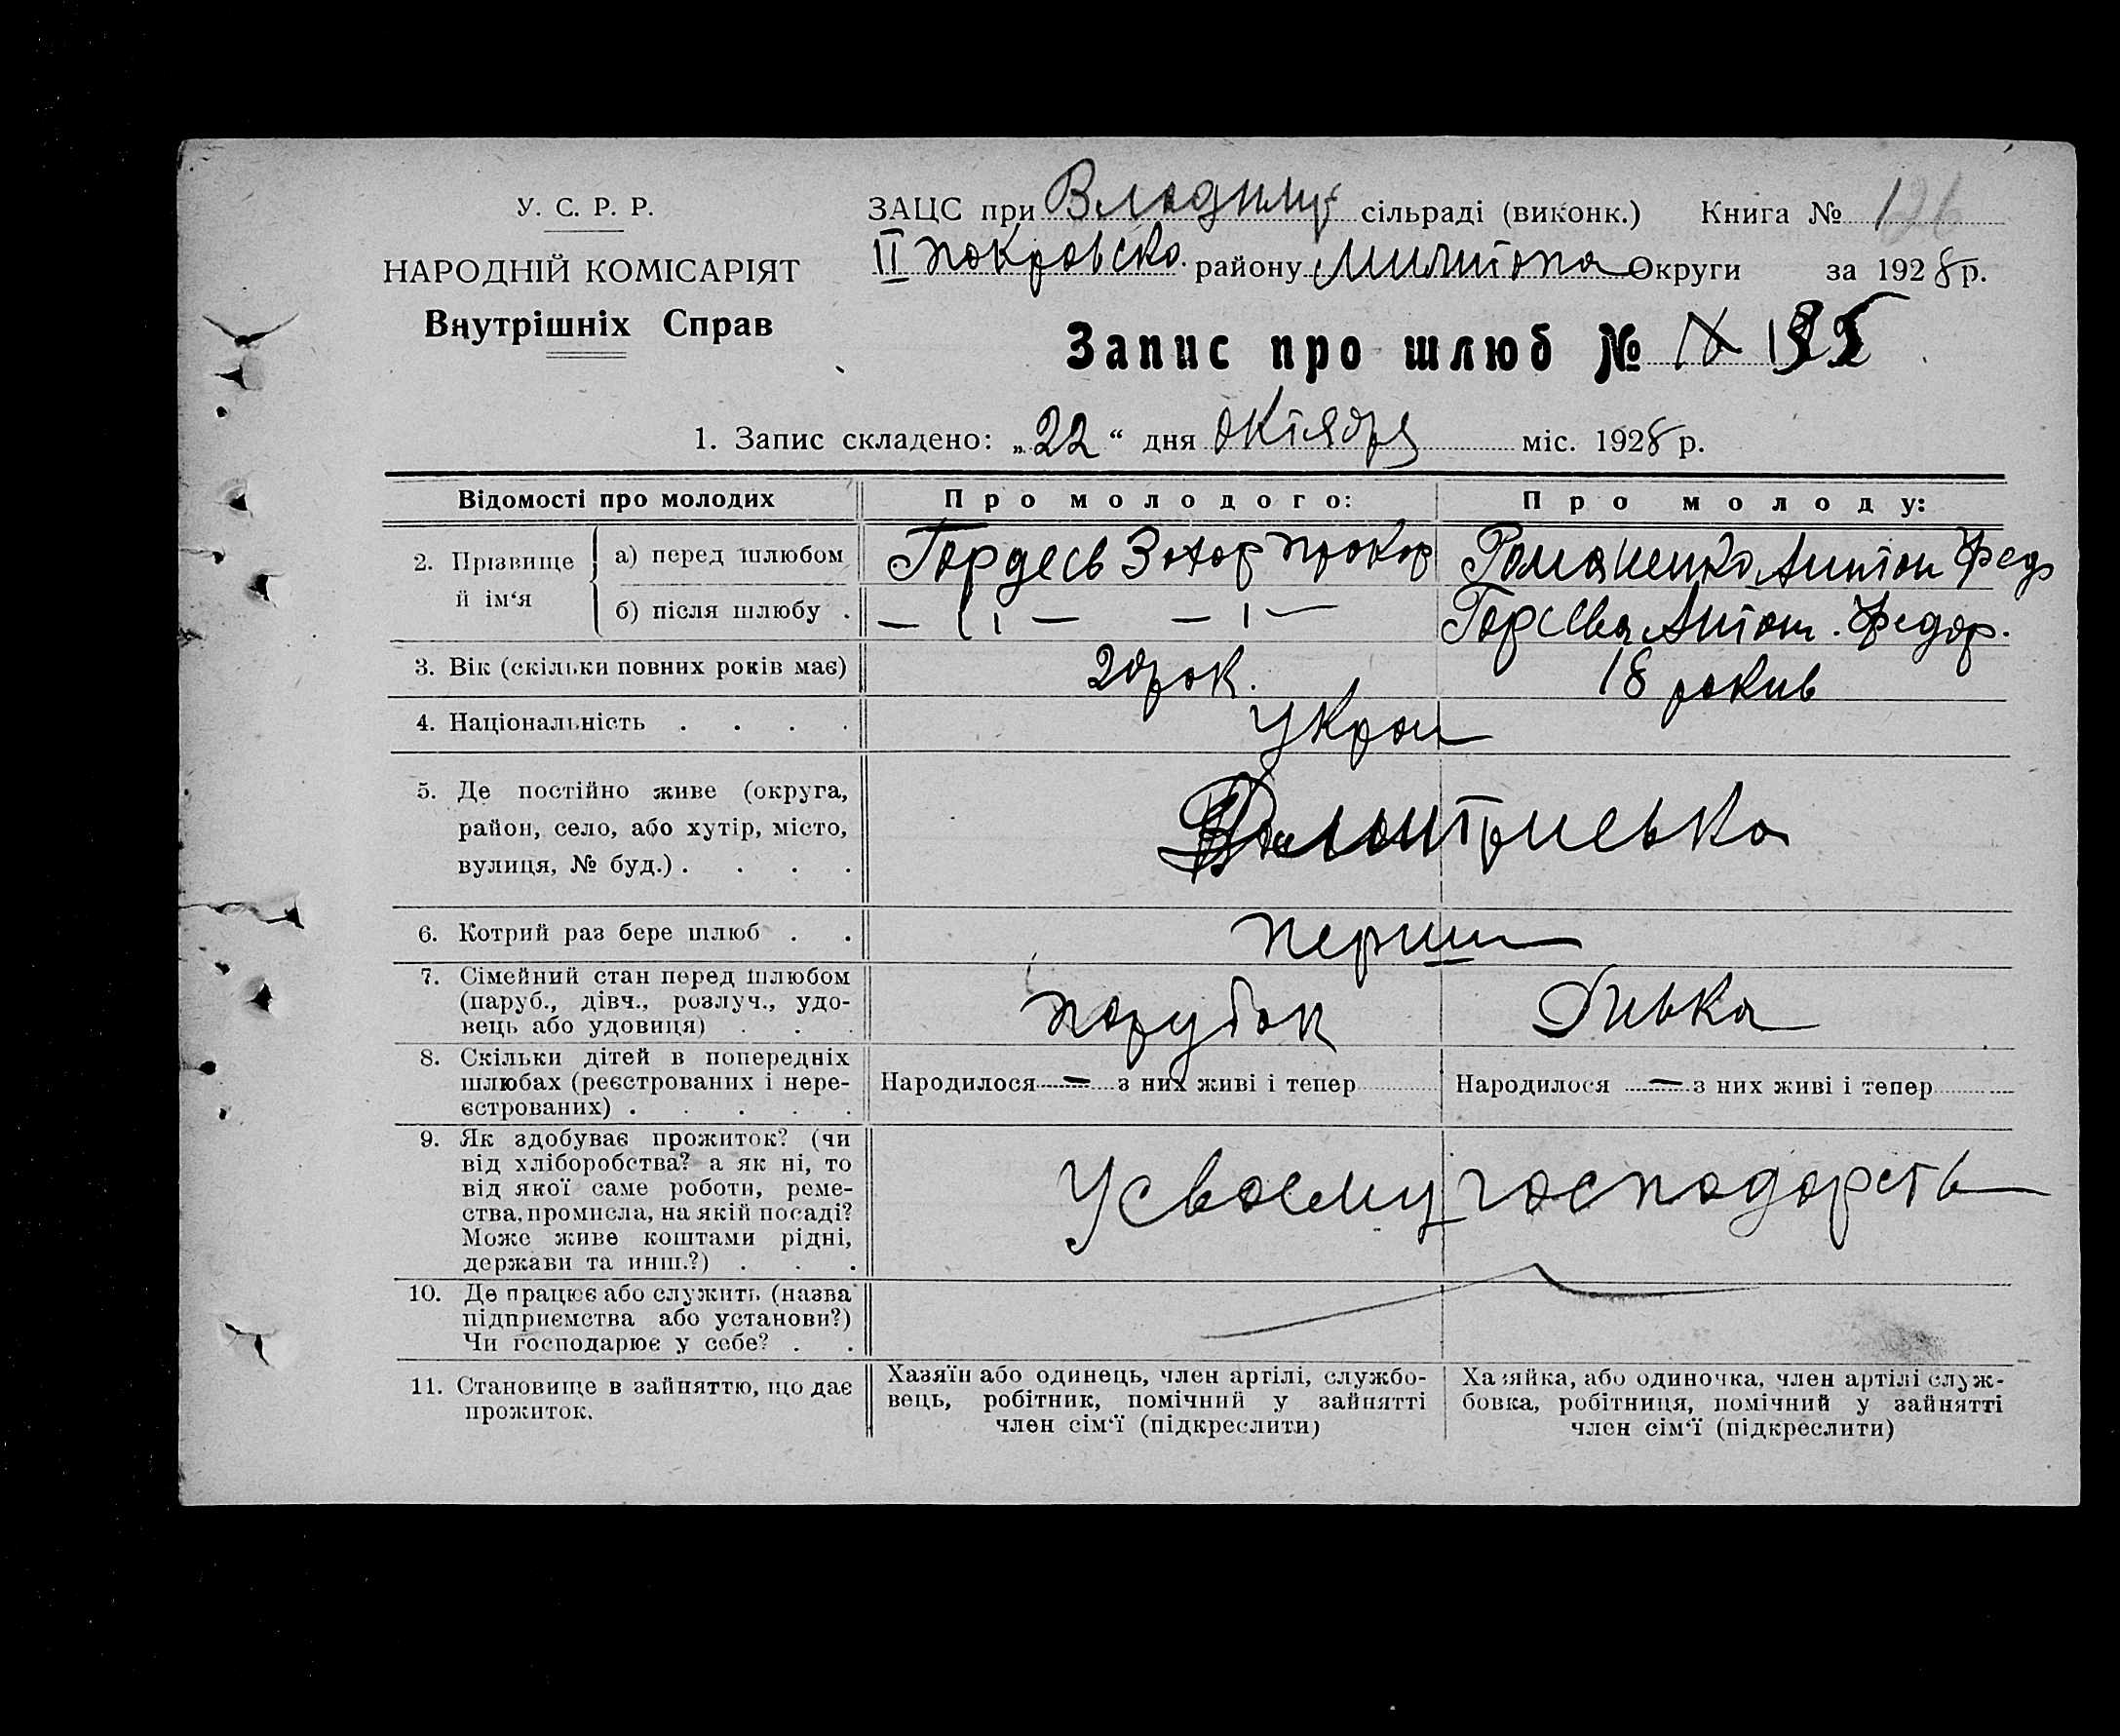 У. С. Р. Р.
НАРОДНІЙ КОМІСАРІЯТ
Внутрішніх Справ
ЗАЦС при Владимир сільраді (виконк.) Книга № 126
II Покровско. району Милитопа Округи за 1928 р.
Запис про шлюб №
1. Запис складено: „22“ дня Октября міс. 1928 р.
Відомості про молодих Про молодого: Про молоду:
2. Прізвище й ім‘я
а) перед шлюбом Захар Прокор Романенко Антон Фед
б) після шлюбу . — ιι — — ι — Антон. Федор.
3. Вік (скільки повних років має) 20 рок. 18 рокив
4. Національність . . . . Украи
5. Де постійно живе (округа,
район, село, або хутір, місто,
вулиця, № буд.) . . . .
6. Котрий раз бере шлюб . . перши
7. Сімейний стан перед шлюбом
(паруб., дівч., розлуч., удо-
вець або удовиця) . . . парубок Дивка
8. Скільки дітей в попередніх
шлюбах (реєстрованих і нере-
єстрованих) . . . . . Народилося — з них живі і тепер Народилося — з них живі і тепер
9. Як здобуває прожиток? (чи
від хліборобства? а як ні, то
від якої саме роботи, реме-
ства, промисла, на якій посаді?
Може живе коштами рідні,
держави та инш.?) . . . У своему господарств
10. Де працює або служить (назва
підприємства або установи?)
Чи господарює у себе? . .
11. Становище в зайняттю, що дає
прожиток.
Хазяїн або одинець, член артілі, службо-
вець, робітник, помічний у зайнятті
член сім‘ї (підкреслити)
Хазяйка, або одиночка, член артілі служ-
бовка, робітниця, помічний у зайнятті
член сім‘ї (підкреслити)